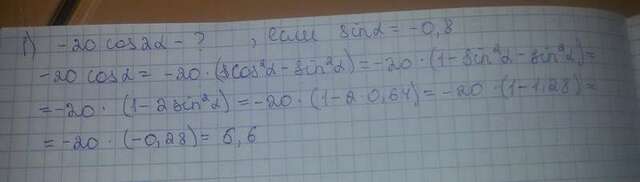 г) -20 cos2α - ? , если sinα = -0,8
-20 cosα = -20 · (cos²α - sin²α) = -20 · (1 - sin²α - sin²α) =
= -20 · (1 - 2sin²α) = -20 · (1 - 2·0,64) = -20 · (1 - 1,28) =
= -20 · (-0,28) = 5,6